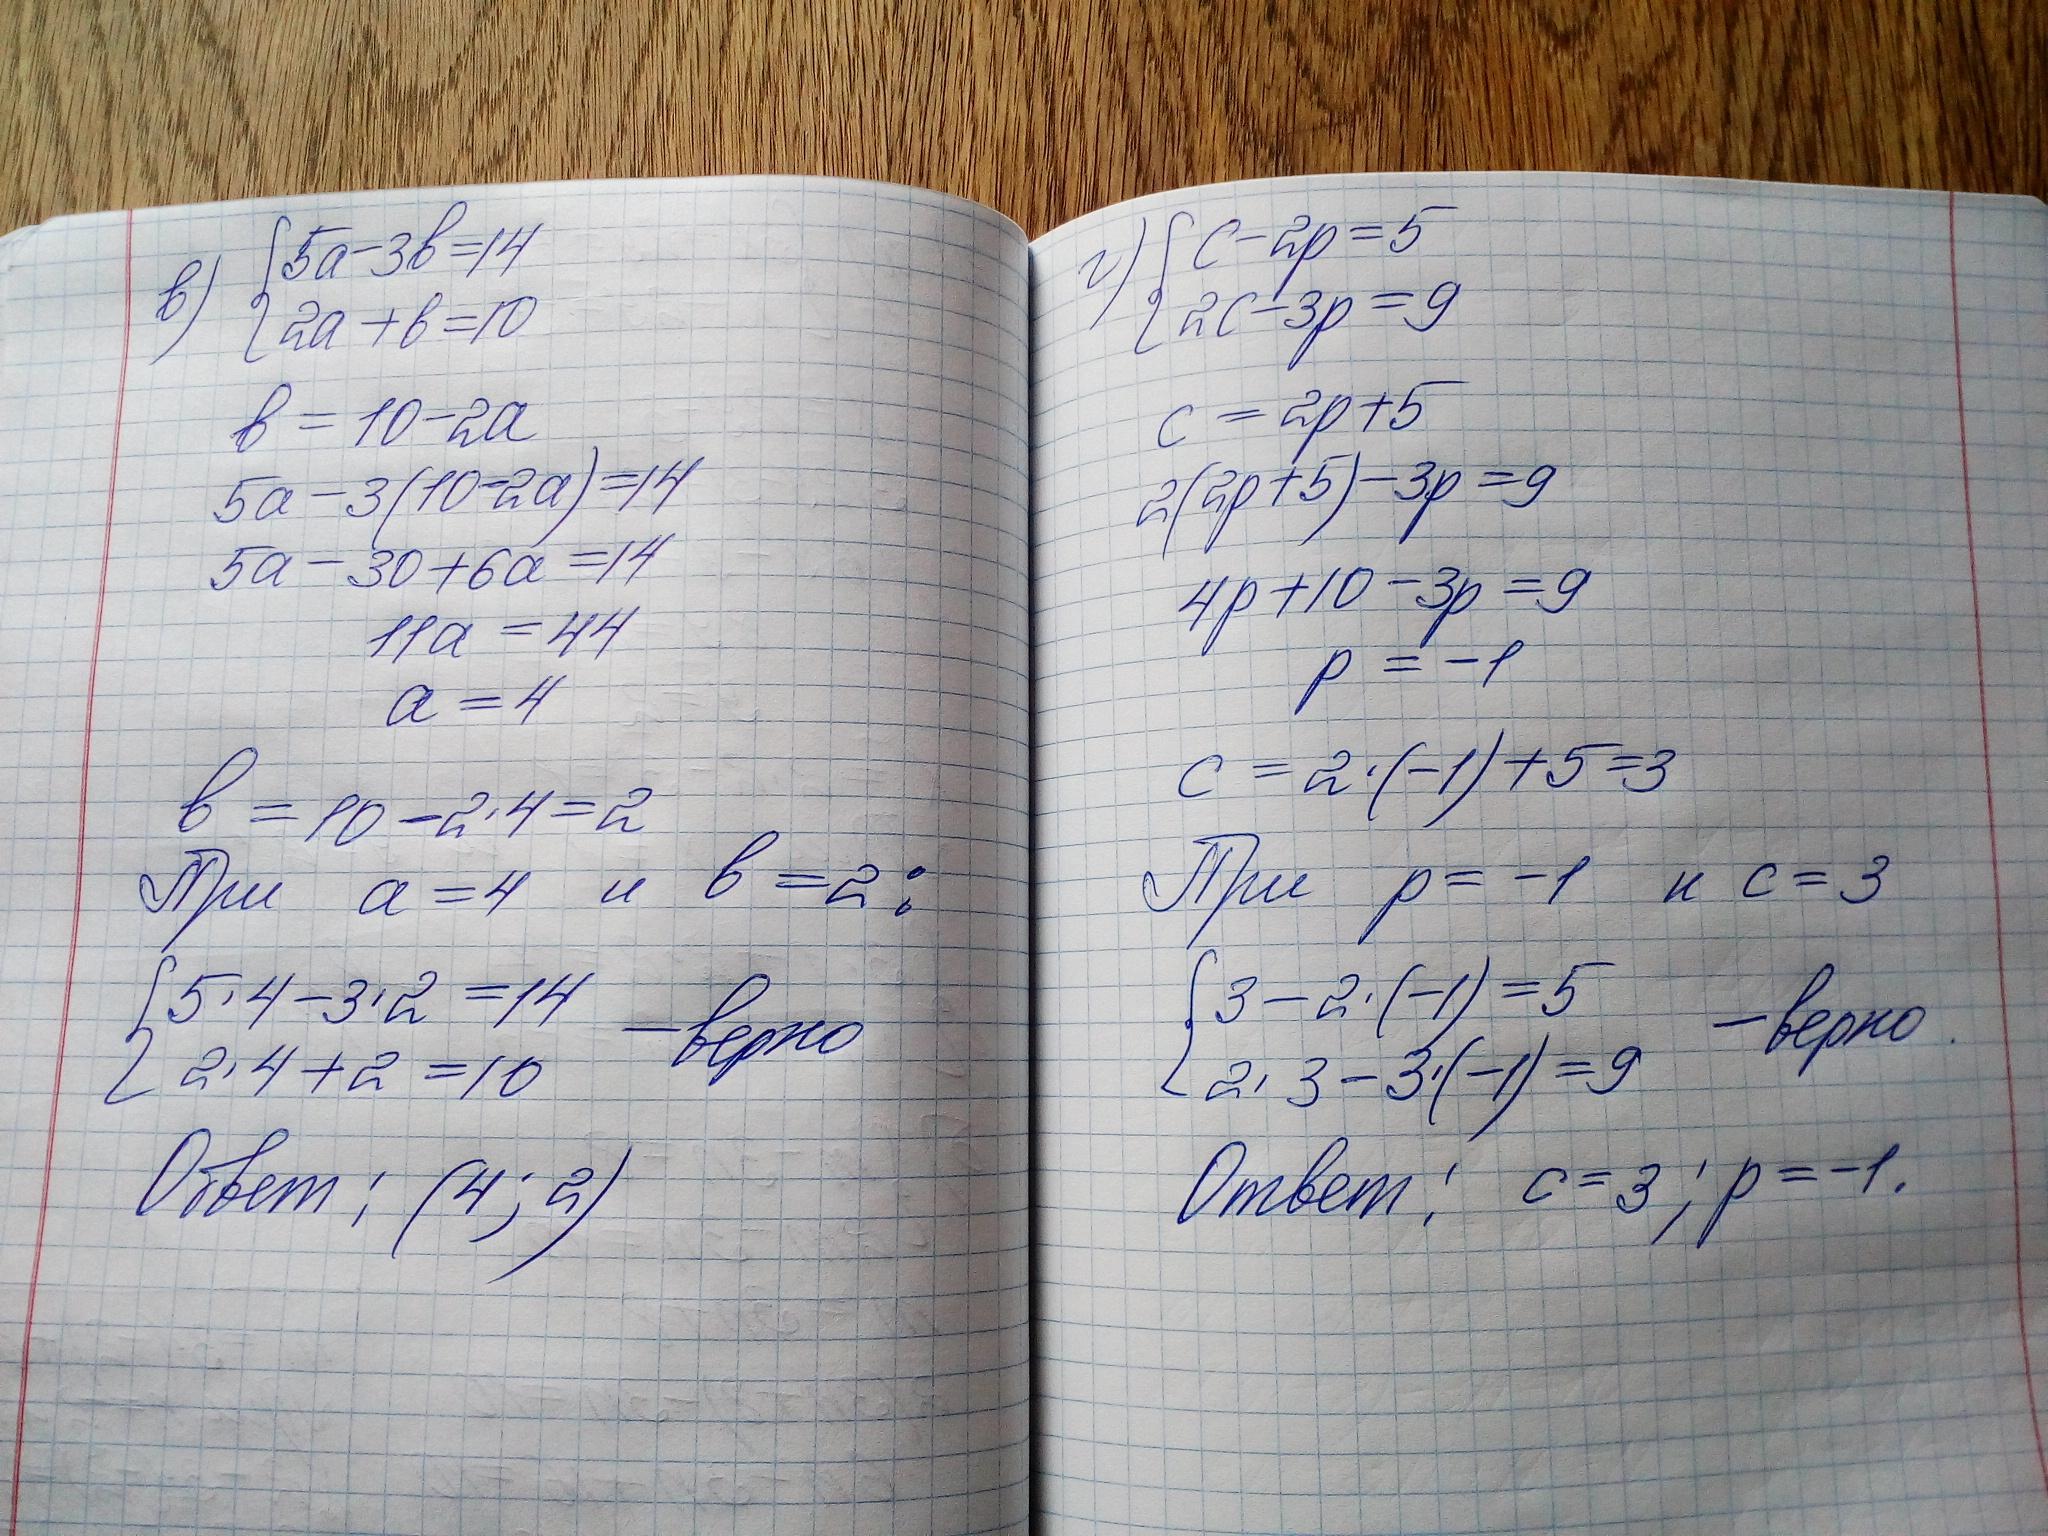 в) { 5a-3b=14
2a+b=10
b = 10-2a
5a-3(10-2a)=14
5a-30+6a=14
11a=44
a=4
b=10-2·4=2
При a=4 и b=2:
{ 5·4-3·2=14
2·4+2=10
-верно
Ответ: (4;2)
г) { c-2p=5
2c-3p=9
c=2p+5
2(2p+5)-3p=9
4p+10-3p=9
p=-1
c=2·(-1)+5=3
При p=-1 и c=3
{ 3-2·(-1)=5
2·3-3·(-1)=9
-верно.
Ответ: c=3; p=-1.